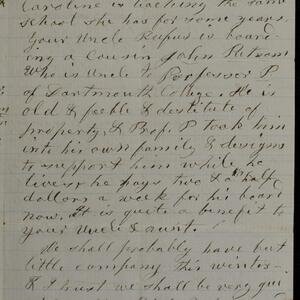 Caroline is teaching the same
school she has for some years.
Your Uncle Rufus is board-
ing a cousin John Putnam
who is Uncle to Porfessor P.
of Dartmouth College. He is
old & feeble & destitute of
property, & Prof. P took him
into his own family & designs
to support him while he
lives & he pays two & a half
dollars a week for his board
now. It is quite a benefit to
your Uncle & aunt.
We shall probably have but
little company this winter
& I trust we shall be very qui